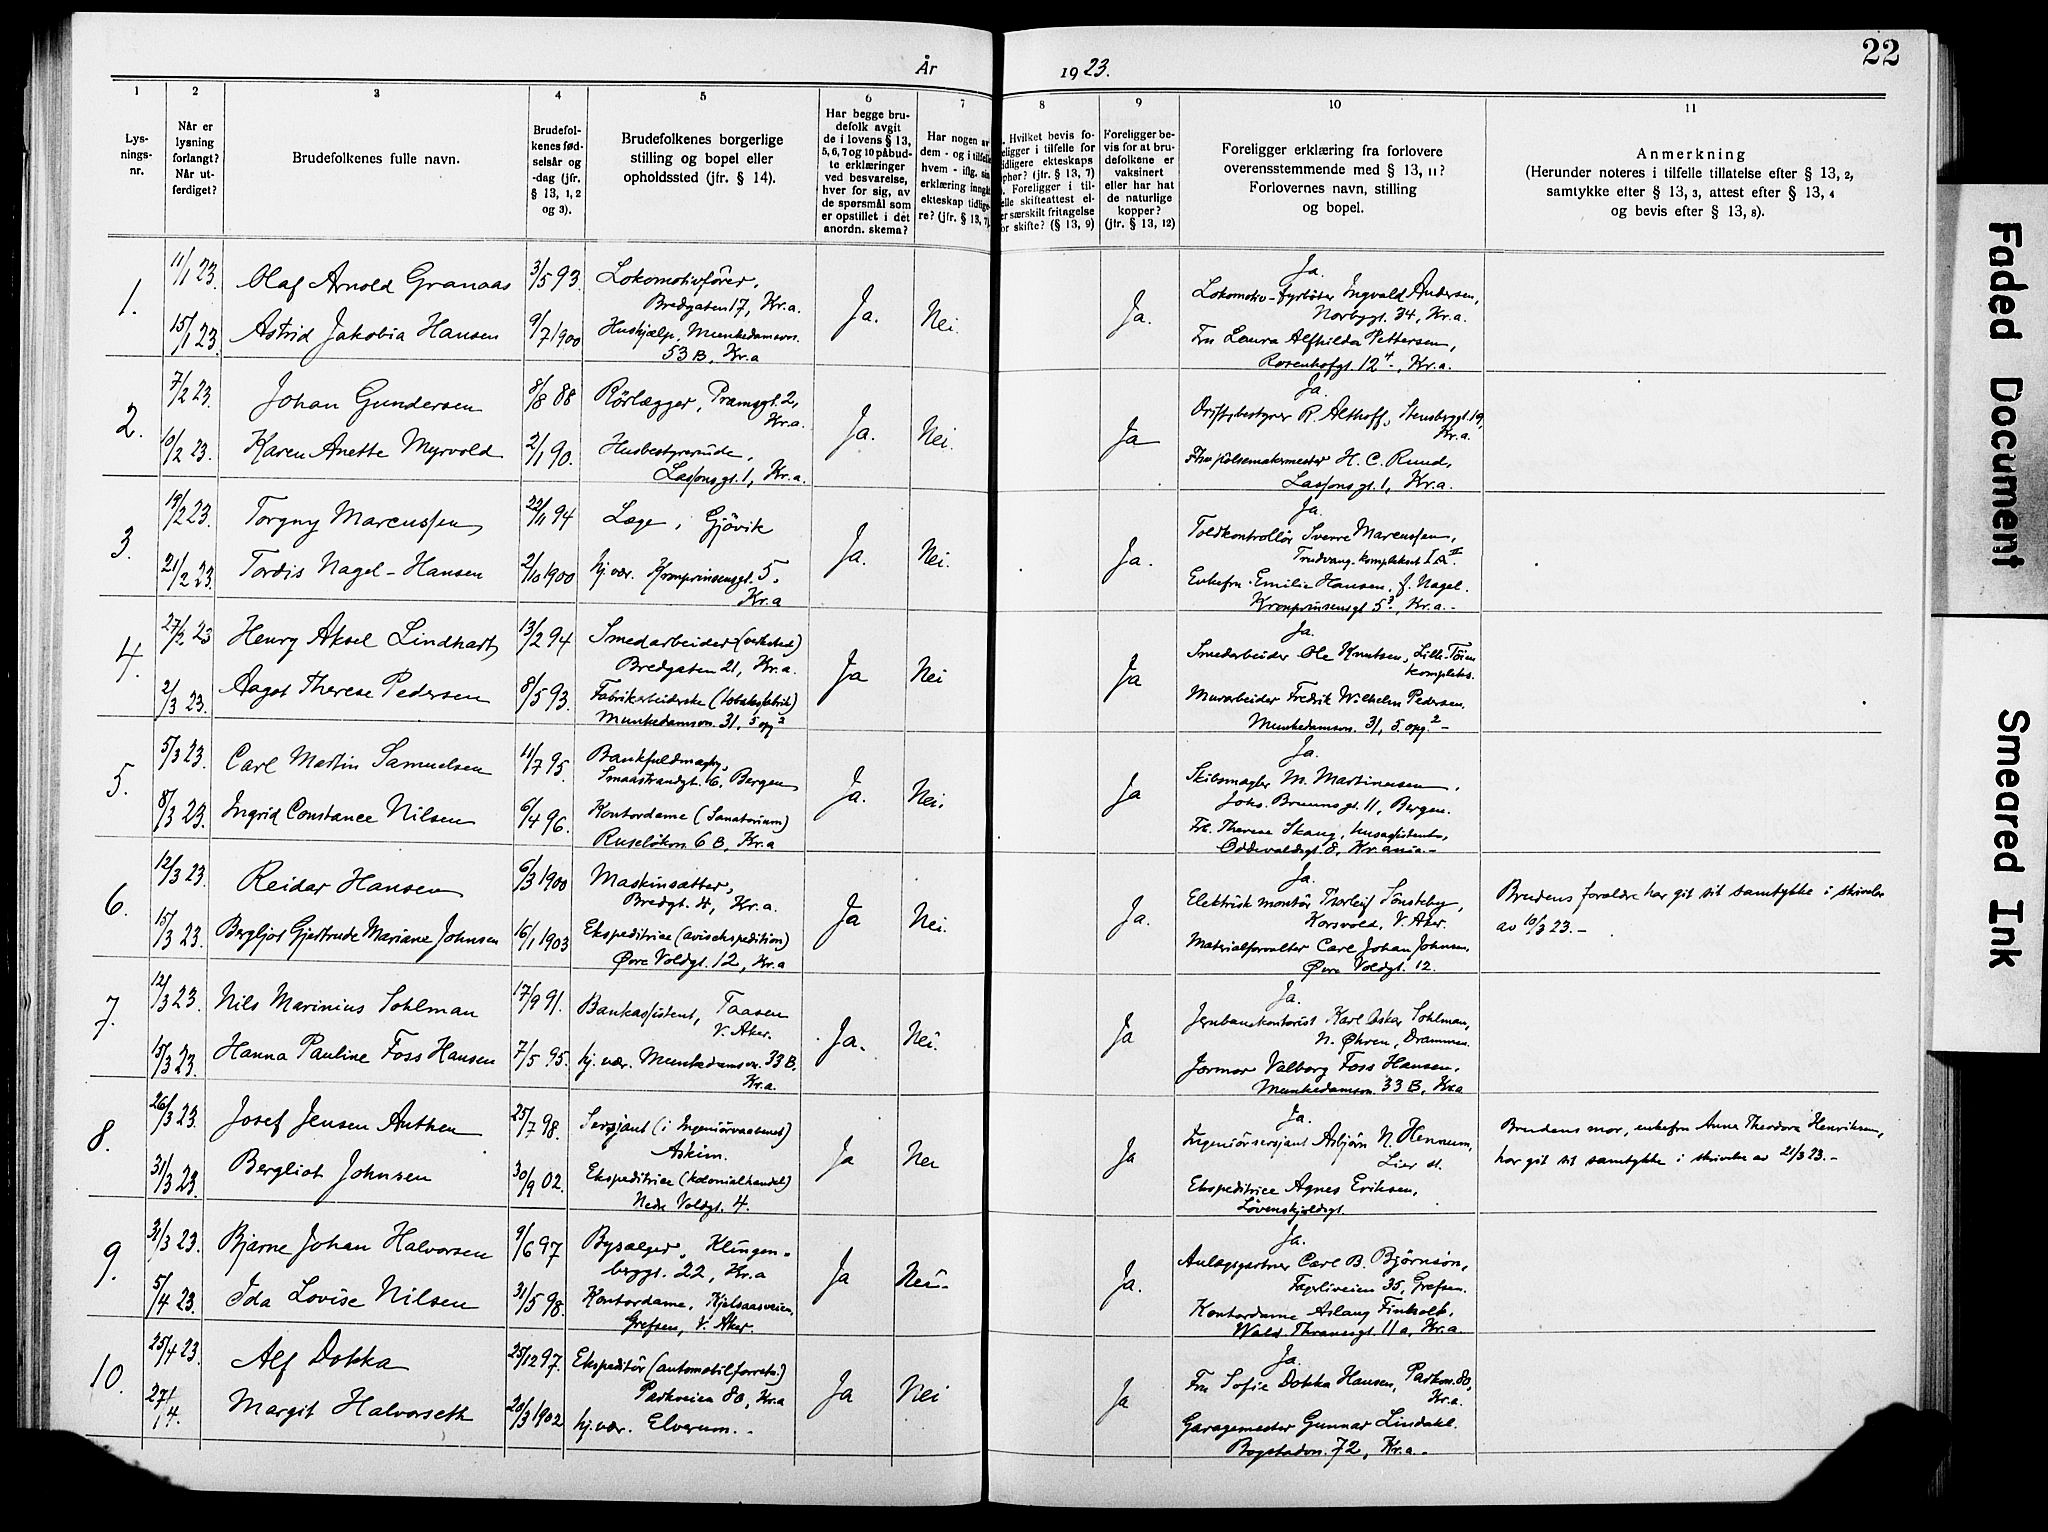 22
År 1923.
1 2 3 4 5 6 7 8 9 10 11
Lys-
nings-
nr.
Når er
lysning
forlangt?
Når ut-
ferdiget?
Brudefolkenes fulle navn.
Brudefol-
kenes fød-
selsår og
-dag (jfr.
§ 13, 1, 2
og 3).
Brudefolkenes borgerlige
stilling og bopel eller
opholdssted (jfr. § 14).
Har begge bru-
defolk avgit
de i lovens § 13,
5, 6, 7 og 10 påbud-
te erklæringer
ved besvarelse,
hver for sig, av
de spørsmål som
er opstillet i det
anordn. skema?
Har nogen av
dem - og i tilfelle
hvem - iflg. sin
erklæring inngått
ekteskap tidlige-
re? (jfr. § 13, 7).
Hvilket bevis fo-
religger i tilfelle for
tidligere ekteskaps
ophør? (jfr. § 13, 7)
Foreligger i til-
elle skifteattest el-
er særskilt fritagelse
or skifte? (§ 13, 9)
Foreligger be-
vis for at bru-
defolkene er
vaksinert
eller har hat
de naturlige
kopper?
(jfr. § 13, 12)
Foreligger erklæring fra forlovere
overensstemmende med § 13, 11?
Forlovernes navn, stilling
og bopel.
Anmerkning
(Herunder noteres i tilfelle tillatelse efter § 13, 2,
samtykke efter § 13, 3, attest efter § 13, 4
og bevis efter § 13, 8).
1.
11/1 23. Olaf Arnold Granaas 3/5 93. Lokomotivfører,
Bredgaten 17, Kr.a.
15/1 23. Astrid Jakobia Hansen 9/7 1900 Hushjælp, Munkedamsvn.
53 B, Kr.a
Ja. Nei. Ja.
Ja.
Lokomotiv-fyrbøter Ingvald Andersen,
Norbygt. 34, Kr.a.
Fru Laura Alfhilda Pettersen,
Rosenhofgt. 12 4-, Kr.a.
2.
7/2 23. Johan Gundersen 8/8 88 Rörlægger, Pramsgt. 2,
Kr.a.
10/2 23. Karen Anette Myrvold 2/1 90. Husbestyrerinde,
Lassonsgt. 1, Kr.a.
Ja. Nei. Ja
Ja.
Driftsbestyrer R. Althoff, Stensbergt. 19,
Kr.a.
pölsemakermester H. C. Ruud,
Lassonsgt. 1, Kr.a.
3.
19/2 23. Torgny Marcussen 22/11 94 Læge, Gjövik
21/2 23. Tordis Nagel-Hansen 2/10 1900 hj. vær. Kronprinsensgt. 5.
Kr.a
Ja. Nei. Ja.
Ja.
Toldkontrollör Sverre Marcussen,
Trudvang-komplekset I A II.
Enkefru Emilie Hansen, f. Nagel.
Kronprinsensgt 5 3, Kr.a.-
4.
27/2 23 Henry Aksel Lindhart 13/2 94 Smedarbeider (verksted)
Bredgaten 21, Kr.a.
2/3 23. Aagot Therese Pedersen 8/5 93. Fabrikarbeiderske (tobaksfabrik)
Munkedamsvn. 31, 5 opg 2
Ja Nei Ja
Ja.
Smedarbeider Ole Knutsen, Lille-Töien
kompleks.
Murarbeider Fredrik Wilhelm Pedersen.
Munkedamsvn. 31, 5. opg. 2 -
5.
5/3 23. Carl Martin Samuelsen 11/7 95. Bankfuldmægtig,
Smaastrandgt. 6, Bergen
8/3 23. Ingrid Constance Nilsen 6/4 96. Kontordame (Sanatorium)
Ruselökvn. 6 B, Kr.a
Ja. Nei. Ja
Ja.
Skibsmægler M. Martinussen,
Johs. Bruunsgt. 11, Bergen.
Frk. Therese Skaug, husassistent,
Oddevaldsgt. 8, Kr.ania-
6.
12/3 23. Reidar Hansen 6/3 1900 Maskinsætter,
Bredgt. 4, Kr.a.
15/3 23. Bergljot Gjertrude Mariane Johnsen 16/1 1903 Ekspeditrice (avisekspedition)
Øvre Voldgt. 12, Kr.a
Ja Nei. Ja.
Ja.
Elektrisk montör Thorleif Sönsteby,
Korsvold, V. Aker.
Materialforvalter Carl Johan Johnsen.
Øvre Voldgt. 12.
Brudens forældre har git sit samtykke i skrivelse
av 10/3 23.-
7.
12/3 23. Nils Marinius Sohlman 17/9 91. Bankassistent, Taasen
V. Aker.
15/3 23. Hanna Pauline Foss Hansen 7/5 95. hj. vær. Munkedamsvn. 33 B.
Kr.a.
Ja. Nei. Ja
Ja.
Jernbanekontorist Karl Oskar Sohlman,
N. Øhren, Drammen.
Jormor Valborg Foss Hansen,
Munkedamsvn. 33 B, Kr.a
8.
26/3 23. Josef Jensen Authen 25/7 98. Sersjant (i Ingeniörvaabnet)
Askim.
31/3 23. Bergliot Johnsen 30/9 02. Ekspeditrice (kolonialhandel)
Nedre Voldgt. 4.
Ja Nei Ja
Ja.
Ingeniörsersjant Asbjörn N. Hennum,
Lier st.
Ekspeditrice Agnes Eriksen,
Løvenskjoldsgt.
Brudens mor, enkefru Anna Theodora Henriksen,
har git sit samtykke i skrivelse av 21/3 23.-
9.
31/3 23. Bjarne Johan Halvorsen 9/6 97 Bysælger, Klingen-
berggt. 22, Kr.a
5/4 23. Ida Lovise Nilsen 31/5 98. Kontordame, Kjelsaasveien,
Grefsen, V. Aker.
Ja Nei- Ja.
Ja.
Anlægsgartner Carl B. Björnson,
Fagerliveien 35, Grefsen.
Kontordame Aslaug Finholt,
Wald. Thranesgt. 11 a, Kr.a.
10.
25/4 23. Alf Dokka 25/12 97. Ekspeditör (automobilforretn.)
Parkveien 80, Kr.a
27/4. Margit Halvorseth 20/3 1902 hj. vær. Elverum.
Ja Nei Ja
Ja.
Fru Sofie Dokka Hansen, Parkvn. 80,
Kr.a.
Garagemester Gunnar Lindahl.
Bogstadvn. 72, Kr.a.
Faded Document
Smeared Ink